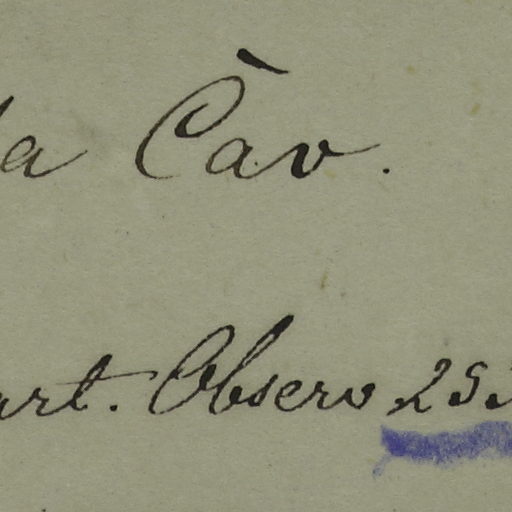 a Càv.
art. Observ 25